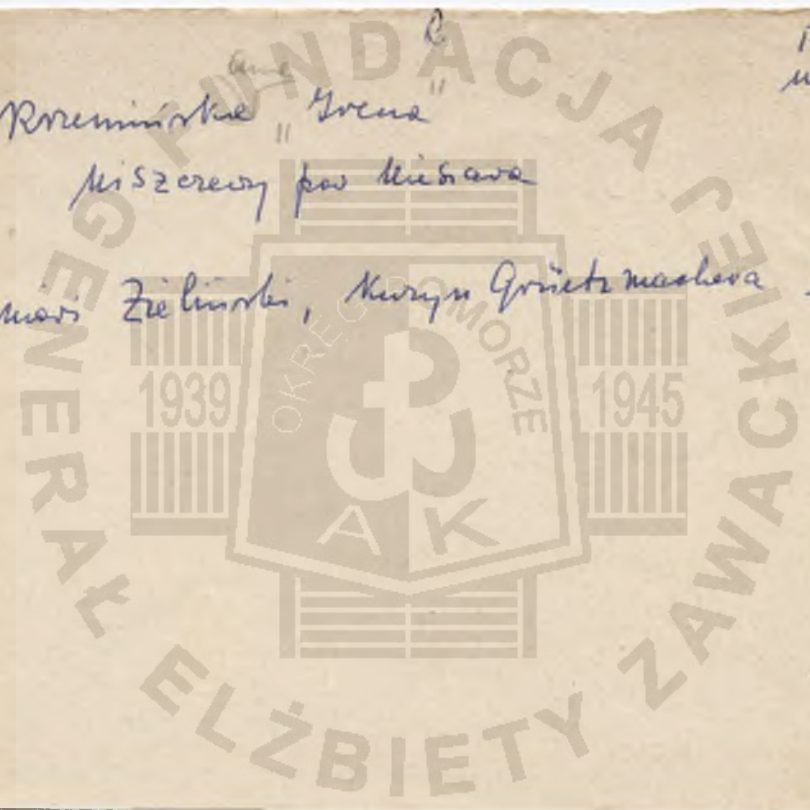 R
Krzemińska „Irena"
Miszczewy pow Nieszawa
Zieliński, Kuzyn Grüetzmachera
FUNDACJA GENERAŁ ELŻBIETY ZAWACKIEJ
OKRĘG POMORZE
1939 1945
A K